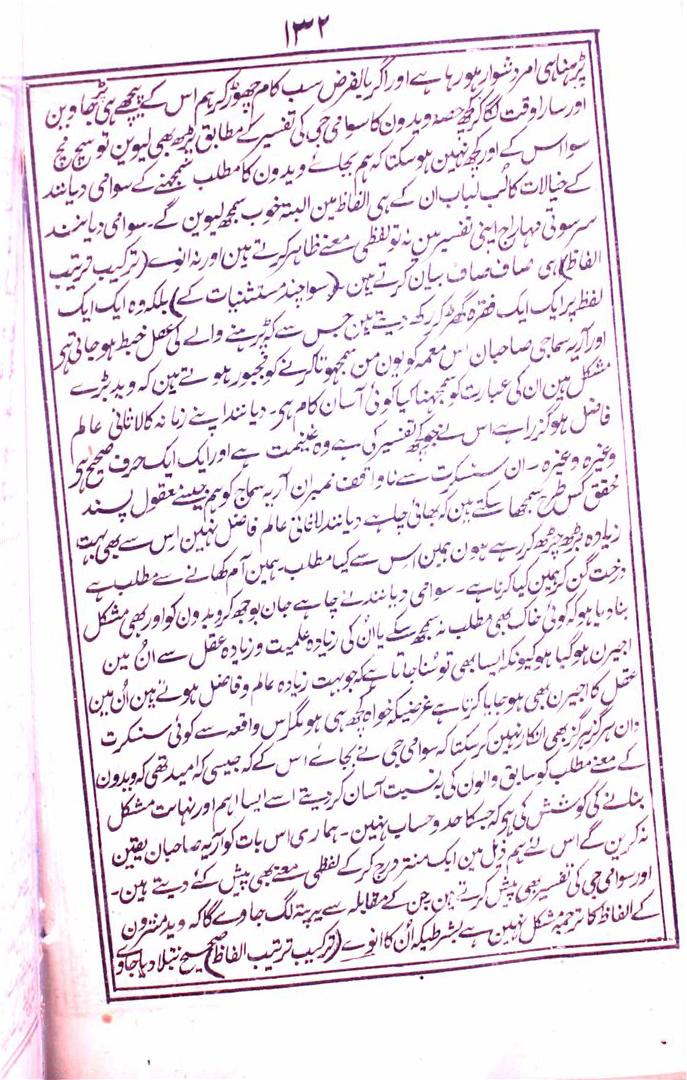 ۱۳۲
پڑھنا ہی امر دشوار ہو رہا ہے اور اگر بالفرض سب کام چھوڑ کر ہم اس کے پیچھے ہی پڑ جاوین
اور سارا وقت لگا کر کچھ حصہ ویدون کا سوامی جی کی تفسیر کے مطابق پڑھ بھی لیوین تو سچ مچ
سوا اس کے اور کچھ نہین ہو سکتا کہ ہم بجائے ویدون کا مطلب سمجھنے کے سوامی دیانند
کے خیالات کا لُب لباب ان کے ہی الفاظ مین البتہ خوب سمجھ لیوین گے۔ سوامی دیانند
سرسوتی مہاراج اپنی تفسیر مین نہ تو لفظی معنے ظاہر کرتے ہین اور نہ انوے (ترکیب ترتیب
الفاظ) ہی صاف صاف بیان کرتے ہین۔ (سوا چند مستثنیات کے) بلکہ وہ ایک ایک
لفظ پر ایک ایک فقرہ گھڑ کر رکھ دیتے ہین جس سے کہ پڑہنے والے کی عقل خبط ہو جاتی ہی
اور آریہ سماجی صاحبان اس معمہ کو یون من سمجھوتا کرنے کو مجبور ہوتے ہین کہ وید بڑے
مشکل ہین ان کی عبارت کو سمجھنا کیا کوئی آسان کام ہی۔ دیانند اپنے زمانہ کا لاثانی عالم
فاضل ہو گزرا ہے اس نے جو کچھ تفسیر کی ہے وہ غنیمت ہے اور ایک ایک حرف صحیح ہی
وغیرہ وغیرہ۔ ان سنسکرت سے ناواقف ممبران آریہ سماج کو ہم جیسے معقول پسند
محقق کس طرح سمجھا سکتے ہین کہ بھائی چاہے دیانند لاثانی عالم فاضل نہین اس سے بھی بہت
زیادہ بڑھ چڑھ کر رہے ہون ہمین اس سے کیا مطلب۔ ہمین آم کھانے سے مطلب ہے
درخت گن کر ہمین کیا کرنا ہے۔ سوامی دیانند نے چاہے جان بوجھ کر ویدون کو اور بھی مشکل
بنا دیا ہو کہ کوئی خاک بھی مطلب نہ سمجھ سکے یا اُن کی زیادہ علمیت و زیادہ عقل سے اُن مین
اجیرن ہو گیا ہو کیونکہ ایسا بھی تو سُنا جاتا ہے کہ جو بہت زیادہ عالم و فاضل ہوئے ہین اُن مین
عقل کا اجیرن بھی ہو جایا کرتا ہے غرضیکہ خواہ کچھ ہی ہو مگر اس واقعہ سے کوئی سنسکرت
دان ہرگز ہرگز بھی انکار نہین کر سکتا کہ سوامی جی نے بجائے اس کے کہ جیسی کہ امید تھی کہ ویدون
کے معنے مطلب کو سابق والون کی بہ نسبت آسان کر دیتے اسے ایسا اہم اور نہایت مشکل
بنانے کی کوشش کی ہو کہ جسکا حد و حساب نہین۔ ہماری اس بات کو آریہ صاحبان یقین
نہ کرین گے اس لئے ہم ذیل مین ایک منتر درج کر کے لفظی معنے بھی پیش کئے دیتے ہین۔
اور سوامی جی کی تفسیر بھی پیش کرتے ہین جن کے مقابلہ سے یہ پتہ لگ جاوے گا کہ وید منترون
کے الفاظ کا ترجمہ مشکل نہین ہے بشرطیکہ اُن کا انوے (ترکیب ترتیب الفاظ) صحیح صحیح بتلا دیا جاوے